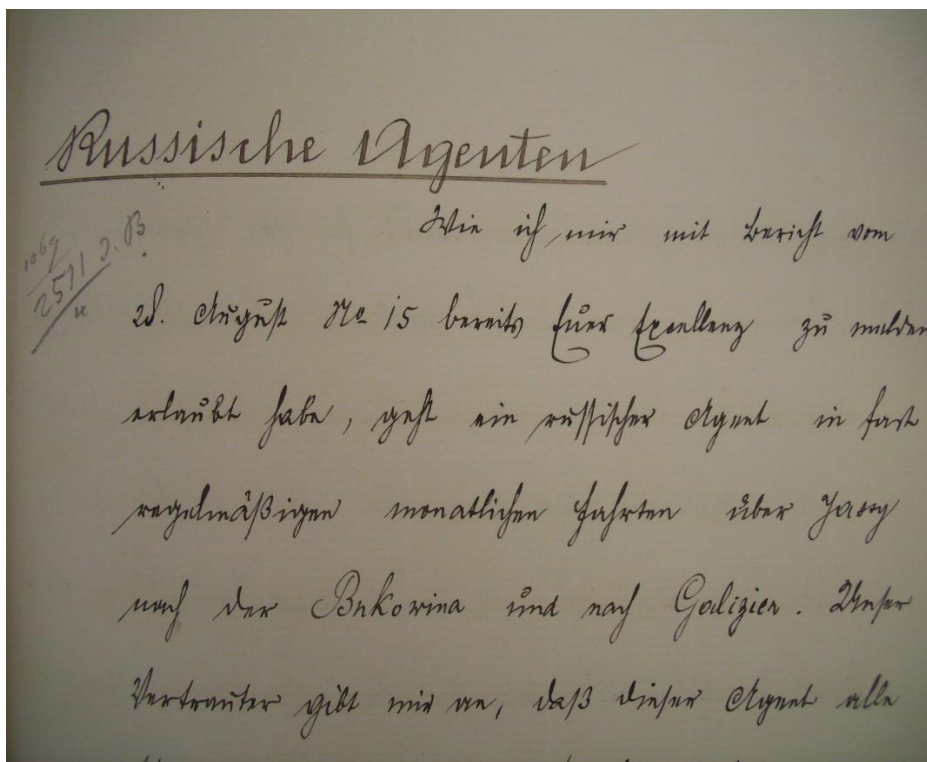 Russische Agenten
Wie ich mir mit Bericht vom
28. August No 15 bereits Euer Excellenz zu melden
erlaubt habe, geht ein russischer Agent in fast
regelmäßigen monatlichen Fahrten über Jassy
nach der Bukowina und nach Galizien. Unser
Vertrauter gibt mir an, daß dieser Agent alle